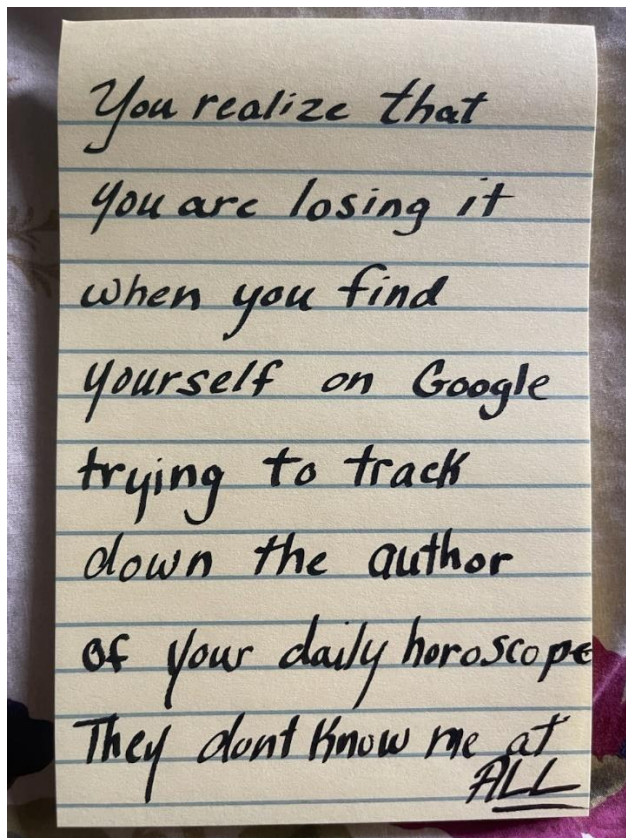 You realize that
you are losing it
when you find
yourself on Google
trying to track
down the author
of your daily horoscope
They dont know me at
ALL